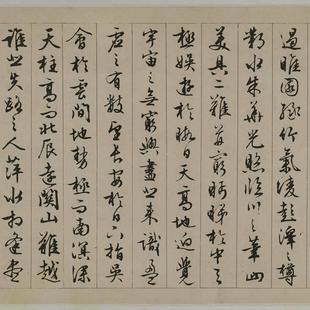 遏睢園綠竹氣凌彭澤之樽
鄴水朱華光照臨川之筆四
美具二難并窮眄睇於中天
極娛遊於暇日天高地迥覺
宇宙之無窮興盡悲來識盈
虛之有數望長安於日下指吳
會於雲間地勢極而南溟深
天柱高而北辰遠關山難越
誰悲失路之人萍水相逢盡